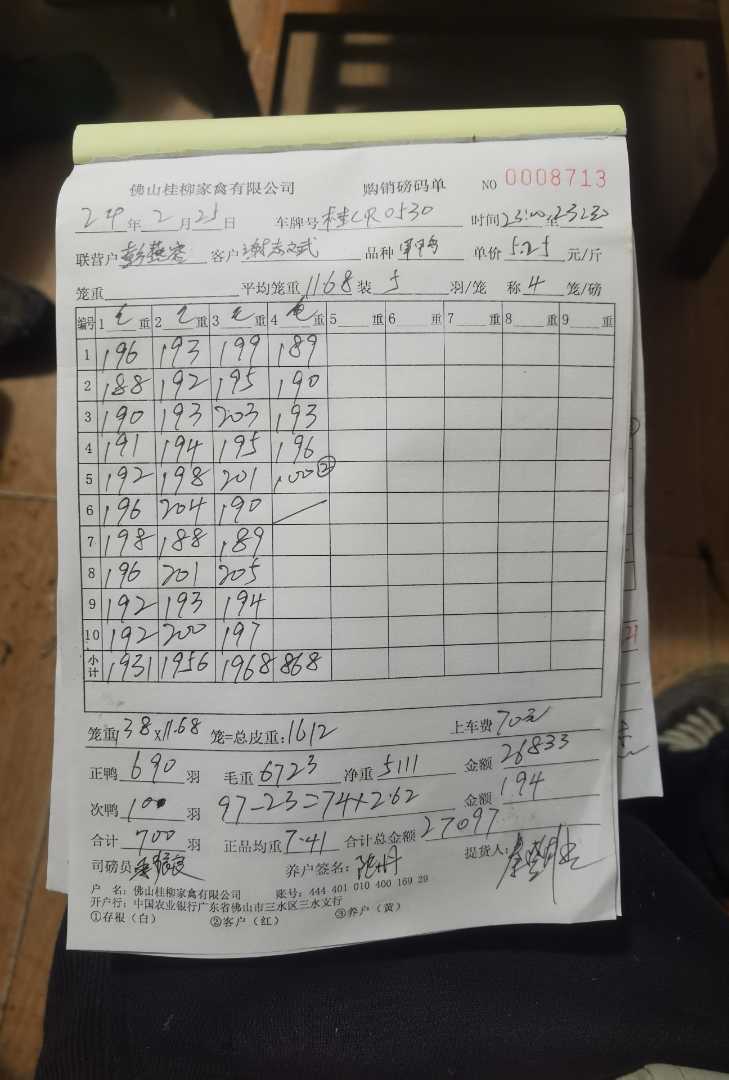 佛山桂柳家禽有限公司 购销磅码单 NO 0008713
24年2月25日 车牌号桂CR0530 时间23:00至23:30
联营户彭燕容 客户谢志武 品种 单价5.25元/斤
笼重 平均笼重1168装5羽/笼 称4笼/磅
编号 1毛重 2毛重 3毛重 4毛重 5重 6重 7重 8重 9重
1 196 193 199 189
2 188 192 195 190
3 190 193 203 193
4 191 194 195 196
5 192 198 201 100②
6 196 204 190
7 198 188 189
8 196 201 205
9 192 193 194
10 192 200 197
小计 1931 1956 1968 868
笼重138×11.68笼=总皮重:1612 上车费70元
正鸭690羽 毛重6723净重5111 金额26833
次鸭10羽 97-23=74×2.62 金额194
合计700羽 正品均重7.41 合计总金额27097
司磅员 养户签名: 提货人:
户 名:佛山桂柳家禽有限公司 账号:444 401 010 400 169 29
开户行:中国农业银行广东省佛山市三水区三水支行
①存根(白) ②客户(红) ③养户(黄)